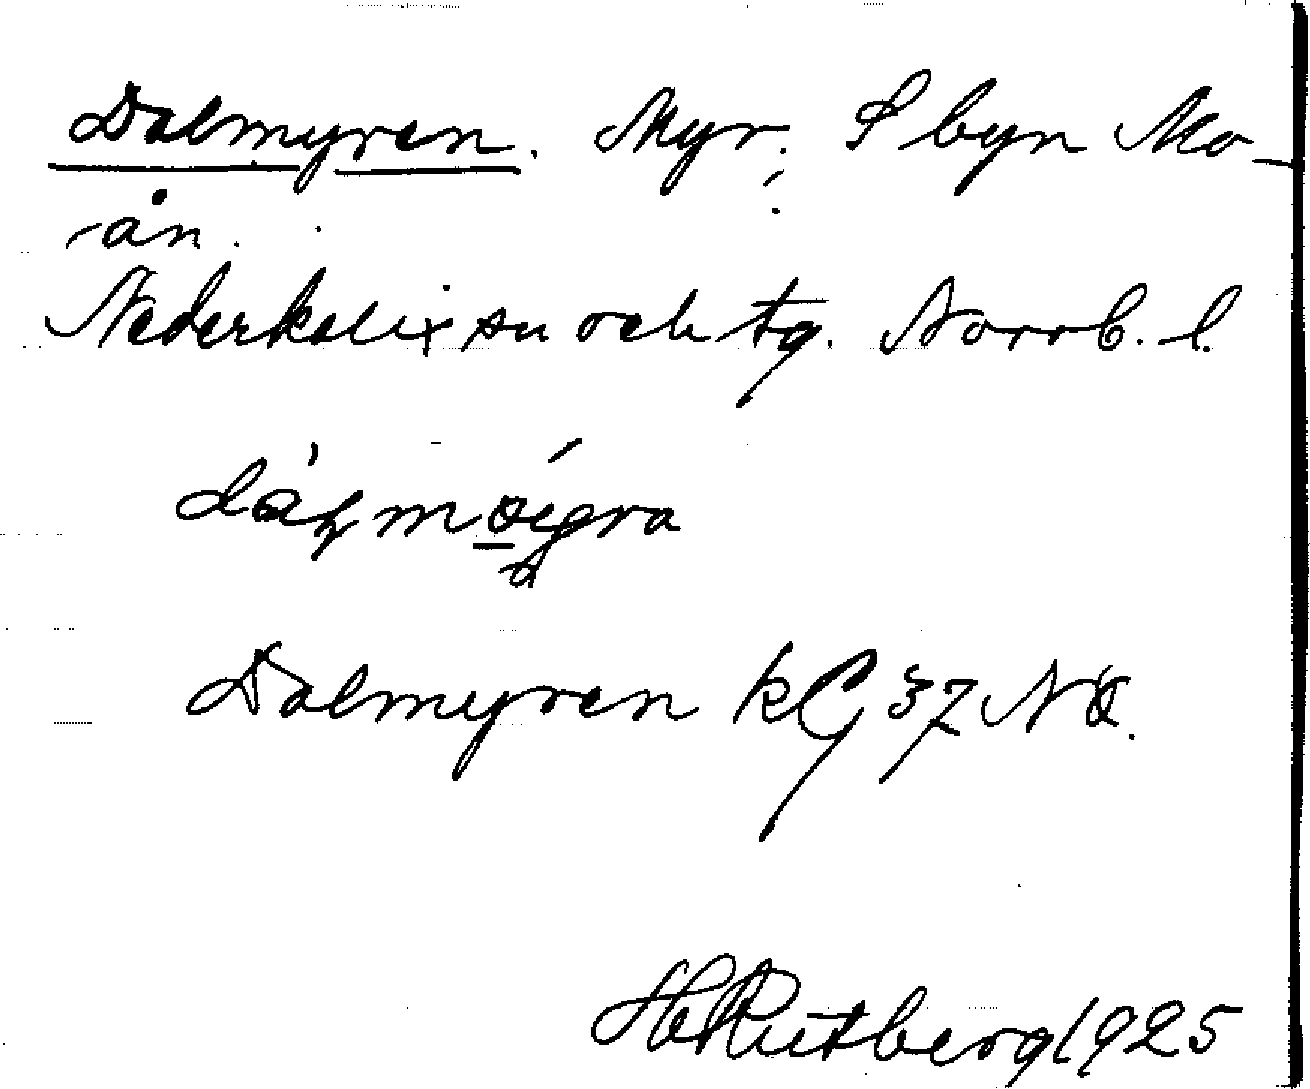 Dalmyren. Myr. S byn Mo-
ån.
Nederkalix sn och tg. Norrb. l.
Dalmyren kG 37 NÖ.
H. Rutberg 1925